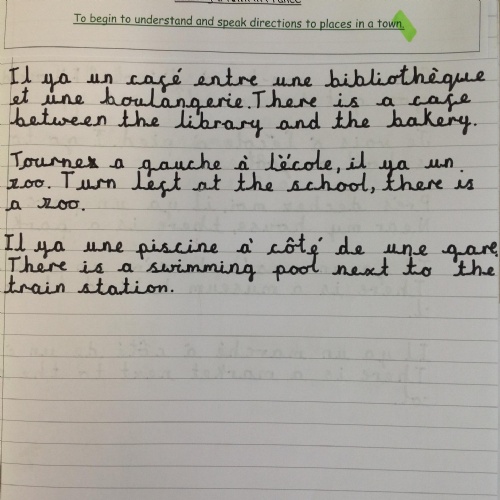 To begin to understand and speak directions to places in a town.
Il ya un café entre une bibliothèque
et une boulangerie. There is a cafe
between the library and the bakery.
Tournez a gauche à l'école, il ya un
zoo. Turn left at the school, there is
a zoo.
Il ya une piscine à côté de une gare.
There is a swimming pool next to the
train station.